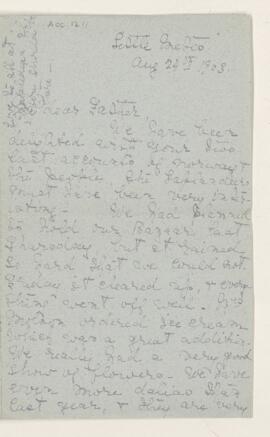 Acc. 1211
Little Metis
Aug 24th 1903.
dear Father
We have been
delighted with your two
last accounts of Norway &
the
must have been very inter
esting. We had planned
to hold our Bazaar last
Thursday but it rained
so hard that we could not.
Friday it cleared up, & every
thing went off well. Mrs
ordered ice cream
which was a great addition.
We really had a very good
show of flowers. We have
even more dahlias than
last year, & they are very